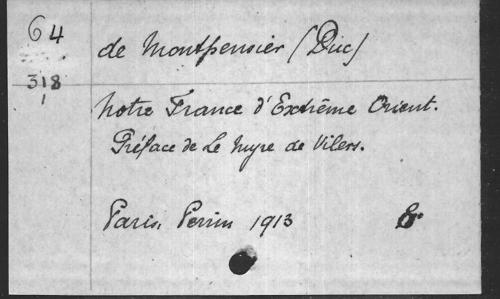 64
de Montpensier (Duc)
318
1
Notre France d'Extrême Orient.
Préface de Le Myre de Vilers.
Paris, Perrin 1913 8º